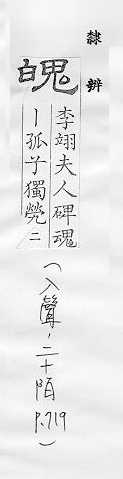 隸辨
魄
李翊夫人碑魂
丨孤子獨煢二
(入聲,二十陌
P.719)